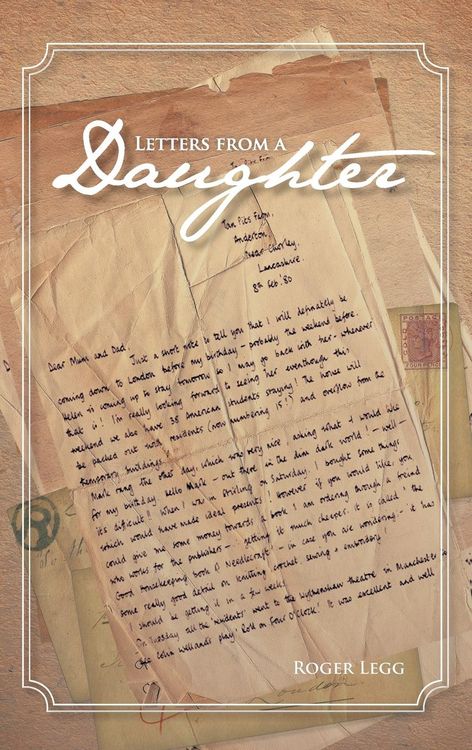 LETTERS FROM A
Daughter
Tan Pits Farm,
Anderton,
Near Chorley,
Lancashire.
8th Feb '80
Dear Mum and Dad,
Just a short note to tell you that I will definately be
coming down to London before my birthday - probably the weekend before
that is! Helen is coming up to stay tomorrow so I may go back with her - whenever
I'm really looking forward to seeing her eventhough this
weekend we also have 38 American students staying! The house will
be packed out and residents (now numbering 15!) and overflow from the
temporary buildings.
Mark rang the other day, which was very nice asking what I would like
for my birthday. Hello Mark - out there in the dim dark world! - well -
it's difficult! When I was in on Saturday I bought some things
which would have made ideal presents! However if you would like, you
could give me some money towards a book I am ordering through a friend
who works for the publishers - getting it much cheaper. it is called 'the
Good Housekeeping book of Needlecraft' - in case you are wondering - it has
some really good detail on knitting, crochet, sewing & embroidery.
I should be getting it in a few weeks.
On Tuesday all the 'residents' went to the Wythenshaw theatre in Manchester to
see Colin Wellands play 'Roll on Four O'Clock'! It was excellent and well
POSTAGE
FOUR PENCE
London
ROGER LEGG